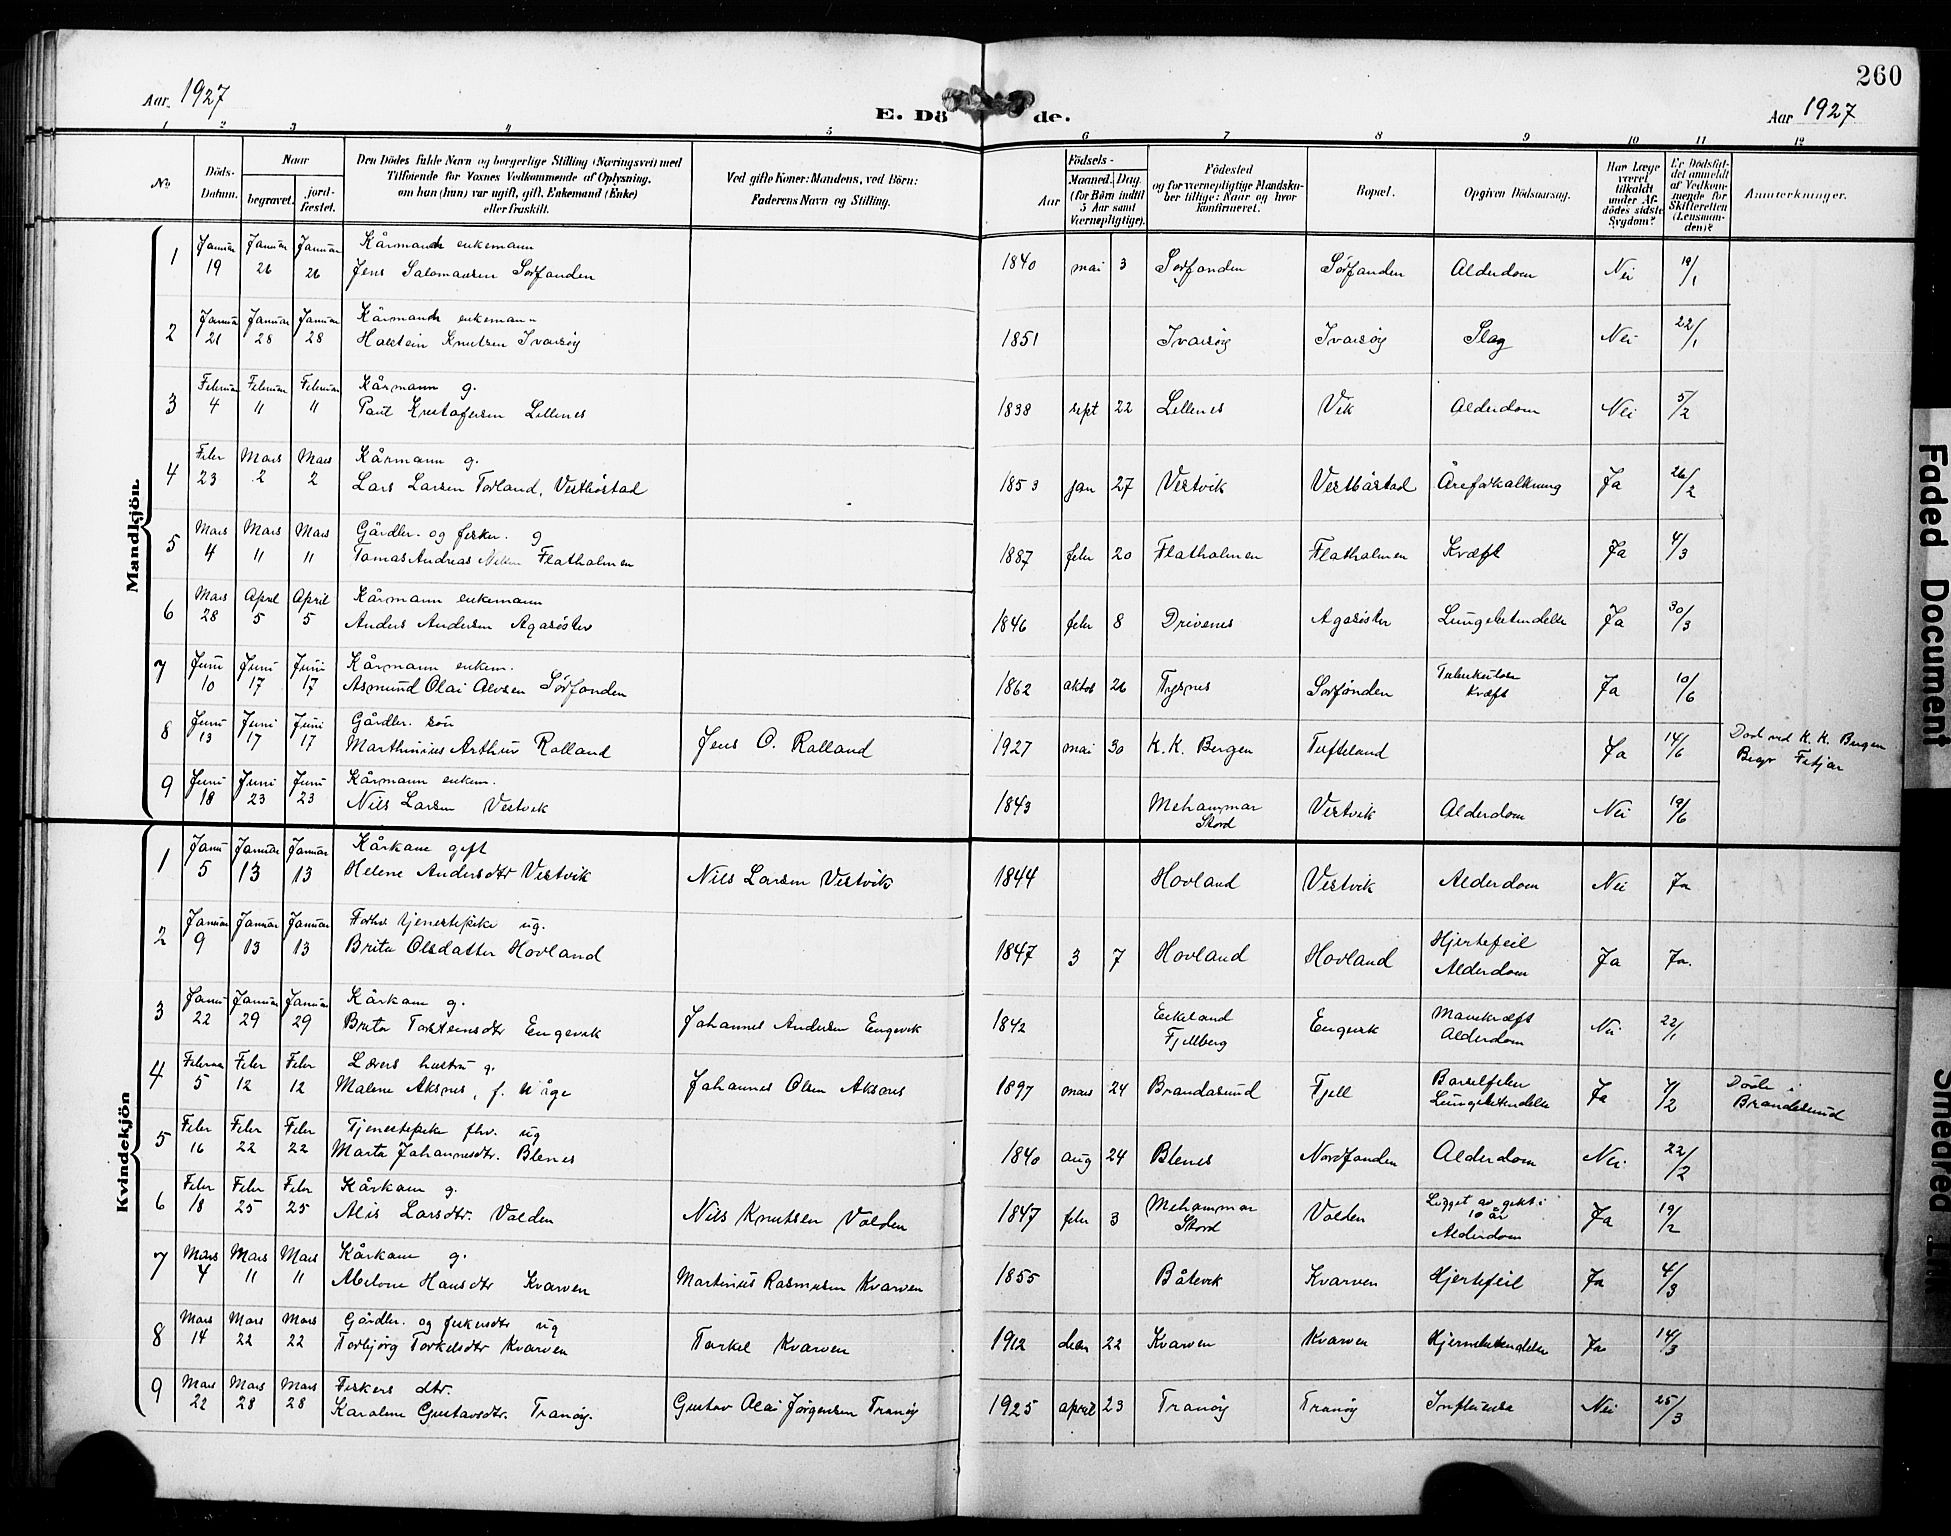 260
Aar 1927
E. Dö de.
Aar 1927
1 2 3 4 5 6 7 8 9 10 11 12
No
Döds-Datum.
Naar
begravet.
jord-fæstet.
Den Dödes fulde Navn og borgerlige Stilling (Næringsvei) med
Tilföiende for Voxnes Vedkommende af Oplysning,
om han (hun) var ugift, gift, Enkemand (Enke)
eller fraskilt.
Ved gifte Koner: Mandens, ved Börn:
Faderens Navn og Stilling.
Födsels-
Aar
Maaned. Dag
(for Börn indtil
5 Aar samt
Værnepligtige).
Födested
og for værnepligtige Mandska-
ber tillige: Naar og hvor
konfirmeret.
Bopæl.
Opgiven Dödsaarsag.
Har Læge
været
tilkaldt
under Af-
dödes sidste
Sygdom?
Er Dödsfal-
det anmeldt
af Vedkom-
mende for
Skifteretten
(Lensman-
den)?
Anmerkninger.
Mandkjön.
1 Januar 19 Januar 26 Januar 26 Kårmand enkemann
Jens Salomonsen Sørfonden 1840 mai 3 Sørfonden Sørfonden Alderdom Nei 19/1
2 Januar 21 Januar 28 Januar 28 Kårmand enkemann
Holstein Knutsen Ivarsøy 1851 Ivarsøy Ivarsøy Slag Nei 22/1
3 Februar 4 Februar 11 Februar 11 Kårmann g.
Paul Kristofersen Lillenes 1838 sept 22 Lillenes Vik Alderdom Nei 5/2
4 Febr 23 Mars 2 Mars 2 Kårmann g.
Lars Larsen Torland, Vestbøstad 1853 jan 27 Vestvik Vestbøstad Åreforkalkning Ja 26/2
5 Mars 4 Mars 11 Mars 11 Gårdbr. og fisker. g
Tomas Andreas Nilsen Flatholmen 1887 febr 20 Flatholmen Flatholmen Kræft Ja 4/3
6 Mars 28 April 5 April 5 Kårmann enkemann
Anders Andersen Agasøster 1846 febr 8 Drivenes Agasøster Lungebetendelse Ja 30/3
7 Juni 10 Juni 17 Juni 17 Kårmann enkem.
Asmund Olai Alvsen Sørfonden 1862 oktob 26 Tysnes Sørfonden Tuberkulose
Kræft Ja 10/6
8 Juni 13 Juni 17 Juni 17 Gårdbr. søn
Marthinius Arthur Rolland Jens O. Rolland 1927 mai 30 K. K. Bergen Tufteland Ja 14/6 Død ved K. K. Bergen
Begr Fitjar
9 Juni 18 Juni 23 Juni 23 Kårmann enkem.
Nils Larsen Vestvik 1843 Mehammar
Stord Vestvik Alderdom Nei 19/6
Kvindekjön
1 Janu 5 Januar 13 Januar 13 Kårkone gift
Helene Andersdtr Vestvik Nils Larsen Vestvik 1844 Hovland Vestvik Alderdom Nei Ja
2 Januar 9 Januar 13 Januar 13 Forhv tjenestepike ug.
Brita Olsdatter Hovland 1847 3 7 Hovland Hovland Hjertefeil
Alderdom Ja Ja.
3 Janu 22 Januar 29 Januar 29 Kårkone g.
Brita Torsteinsdtr Engevik Johannes Andersen Engevik 1842 Eikeland
Fjellberg Engevik Mavekræft
Alderdom Nei 22/1
4 Februar 5 Febr 12 Febr 12 Lærers hustru g.
Malene Aksnes, f. Våge Johannes Olsen Aksnes 1897 mars 24 Brandasund Fjell Barselfeber
Lungebetendelse Ja 7/2 Døde i
Brandasund
5 Febr 16 Febr 22 Febr 22 Tjenestepike fhv. ug
Marta Johannesdtr. Blenes 1840 aug 24 Blenes Nordfonden Alderdom Nei 22/2
6 Febr 18 Febr 25 Febr 25 Kårkone g.
Alis Larsdtr. Volden Nils Knutsen Volden 1847 febr 3 Mehammar
Stord Volden Ligget av gikt i
10 år
Alderdom Ja 19/2
7 Mars 4 Mars 11 Mars 11 Kårkone g.
Abelone Hansdtr Kvarven Martinius Rasmusen Kvarven 1855 Båtevik Kvarven Hjertefeil Ja 4/3
8 Mars 14 Mars 22 Mars 22 Gårdbr. og fiskersdtr ug
Torbjørg Torkelsdtr Kvarven Torkel Kvarven 1912 desm 22 Kvarven Kvarven Hjernebetendelse Ja 14/3
9 Mars 22 Mars 28 Mars 28 Fiskers dtr.
Karoline Gustavsdtr. Tranøy. Gustav Olai Jørgensen Tranøy 1925 april 23 Tranøy Tranøy Influensa Nei 25/3
Faded Document
Smedred Ink